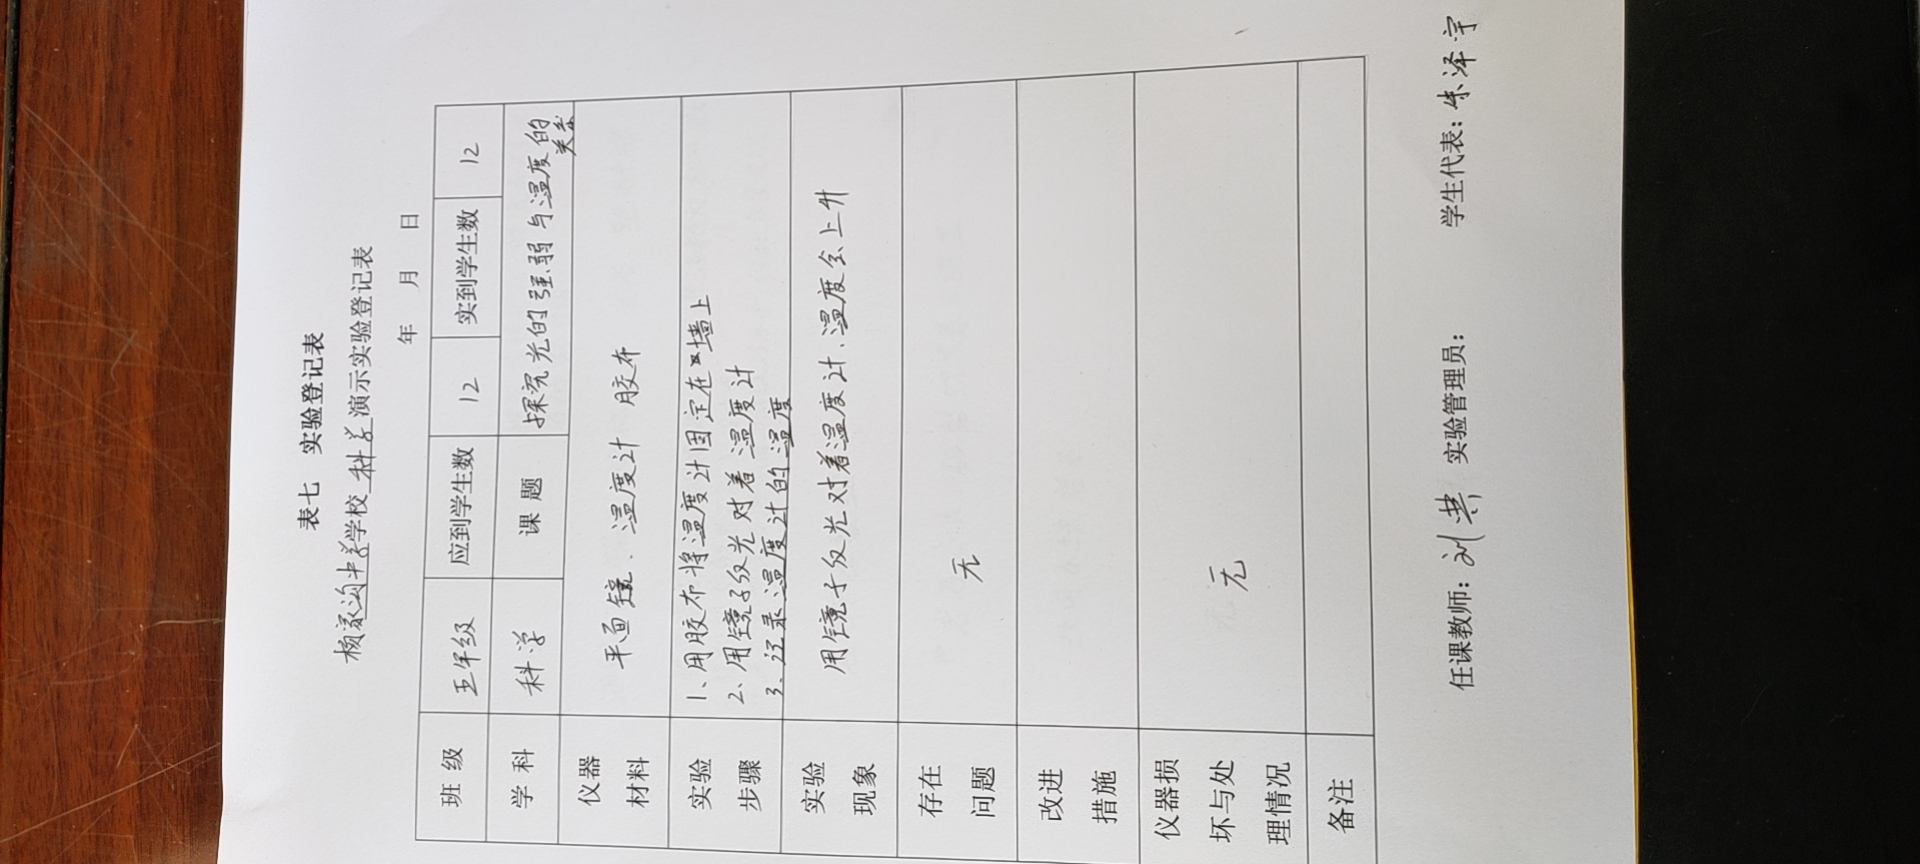 表七 实验登记表
杨家沟中学学校 科学 演示实验登记表
年 月 日
班级 五年级 应到学生数 12 实到学生数 12
学科 科学 课题 探究光的强弱与温度的关系
仪器材料 平面镜、温度计 胶布
实验步骤 1、用胶布将温度计固定在墙上
2、用镜子反光对着温度计
3、记录温度计的温度
实验现象 用镜子反光对着温度计、温度会上升
存在问题 无
改进措施
仪器损坏与处理情况 无
备注
任课教师：刘 实验管理员： 学生代表：朱泽宇